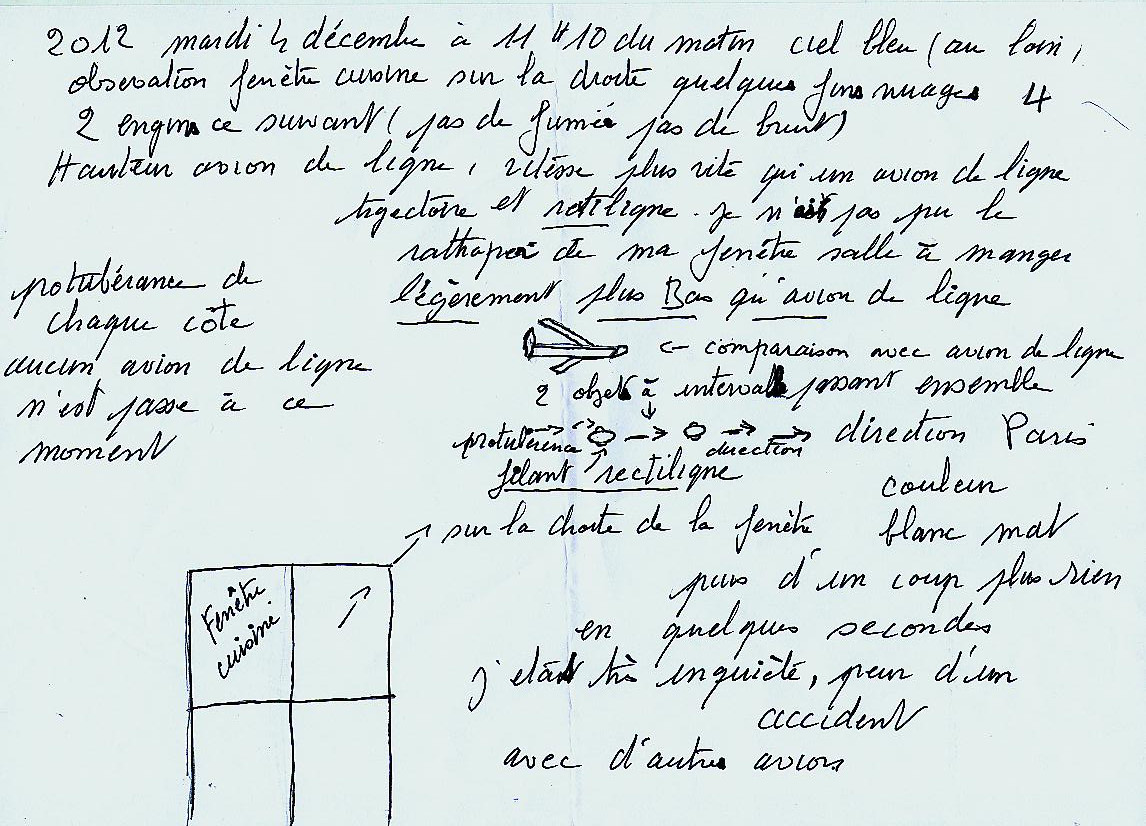 2012 mardi 4 décembre à 11 H 10 du matin ciel bleu (au loin,
observation fenêtre cuisine sur la droite quelques fins nuages 4
2 engins ce suivant (pas de fumée pas de bruit)
Hauteur avion de ligne, vitesse plus vite qu'un avion de ligne
trajectoire et rectiligne. je n'ai pas pu le
rathaper de ma fenêtre salle à manger
légèrement plus Bas qu'avion de ligne
protubérance de
chaque côté
aucun avion de ligne
n'est passe à ce
moment
← comparaison avec avion de ligne
2 objets à intervalle passant ensemble
protubérence → → → → direction Paris
direction
filant rectiligne
couleur
blanc mat
→ sur la droite de la fenêtre
Fenêtre
cuisine
puis d'un coup plus rien
en quelques secondes
j'etait très inquiète, peur d'un
accident
avec d'autres avions